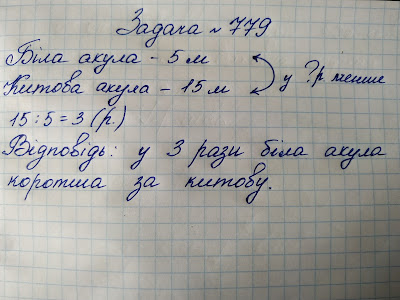 Задача № 779
Біла акула - 5 м
Китова акула - 15 м
у ?р менше
15 : 5 = 3 (р.)
Відповідь: у 3 рази біла акула
коротша за китову.